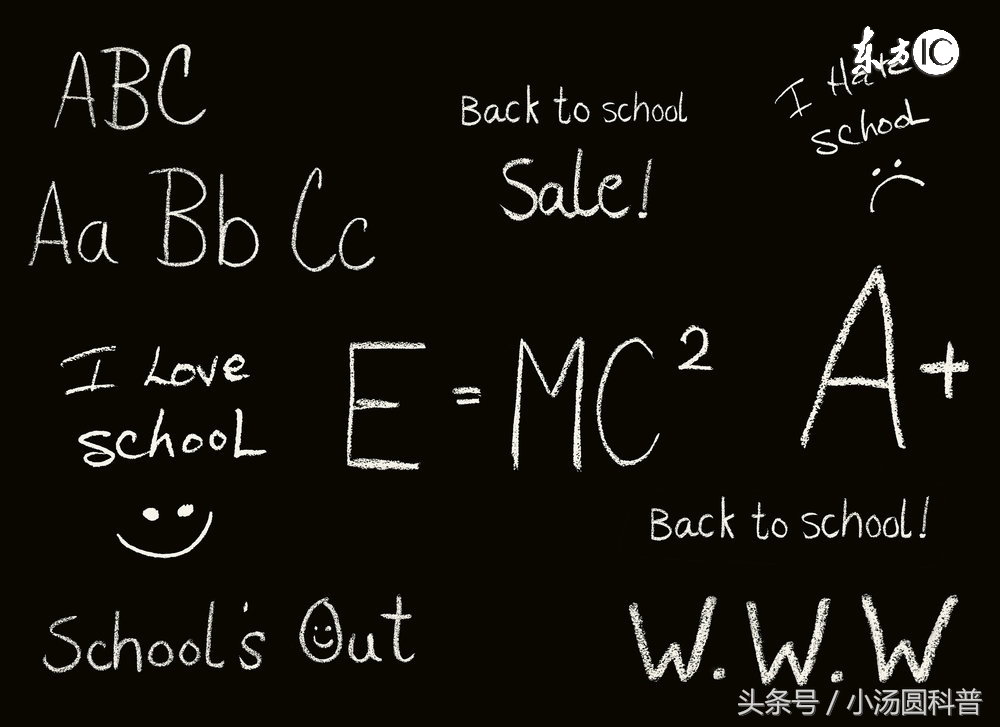 ABC
Back to school
Sale!
东方IC
I Hate
school
Aa Bb Cc
I Love
school
E = MC²
A+
Back to school!
School's Out
W.W.W
头条号 / 小汤圆科普